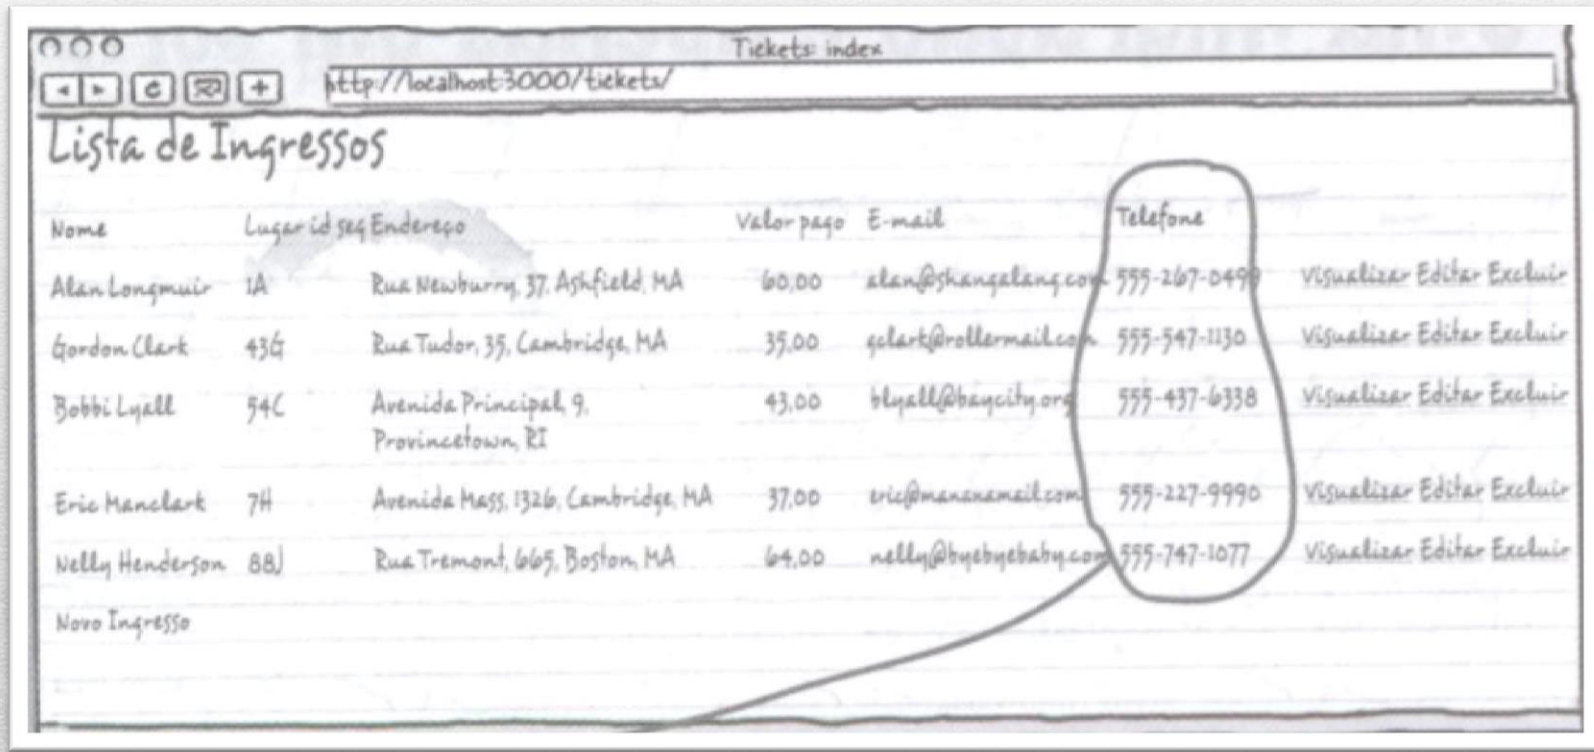 Tickets: index
http://localhost:3000/tickets/
Lista de Ingressos
Nome Lugar id seq Endereço Valor pago E-mail Telefone
Alan Longmuir 1A Rua Newburry, 37, Ashfield, MA 60,00 alan@shangalang.com 555-267-0499 Visualizar Editar Excluir
Gordon Clark 43G Rua Tudor, 35, Cambridge, MA 35,00 gclark@rollermail.com 555-547-1130 Visualizar Editar Excluir
Bobbi Lyall 54C Avenida Principal, 9, 43,00 blyall@baycity.org 555-437-6338 Visualizar Editar Excluir
Provincetown, RI
Eric Manclark 7H Avenida Mass, 1326, Cambridge, MA 37,00 eric@mananamail.com 555-227-9990 Visualizar Editar Excluir
Nelly Henderson 88J Rua Tremont, 665, Boston, MA 64,00 nelly@byebyebaby.com 555-747-1077 Visualizar Editar Excluir
Novo Ingresso